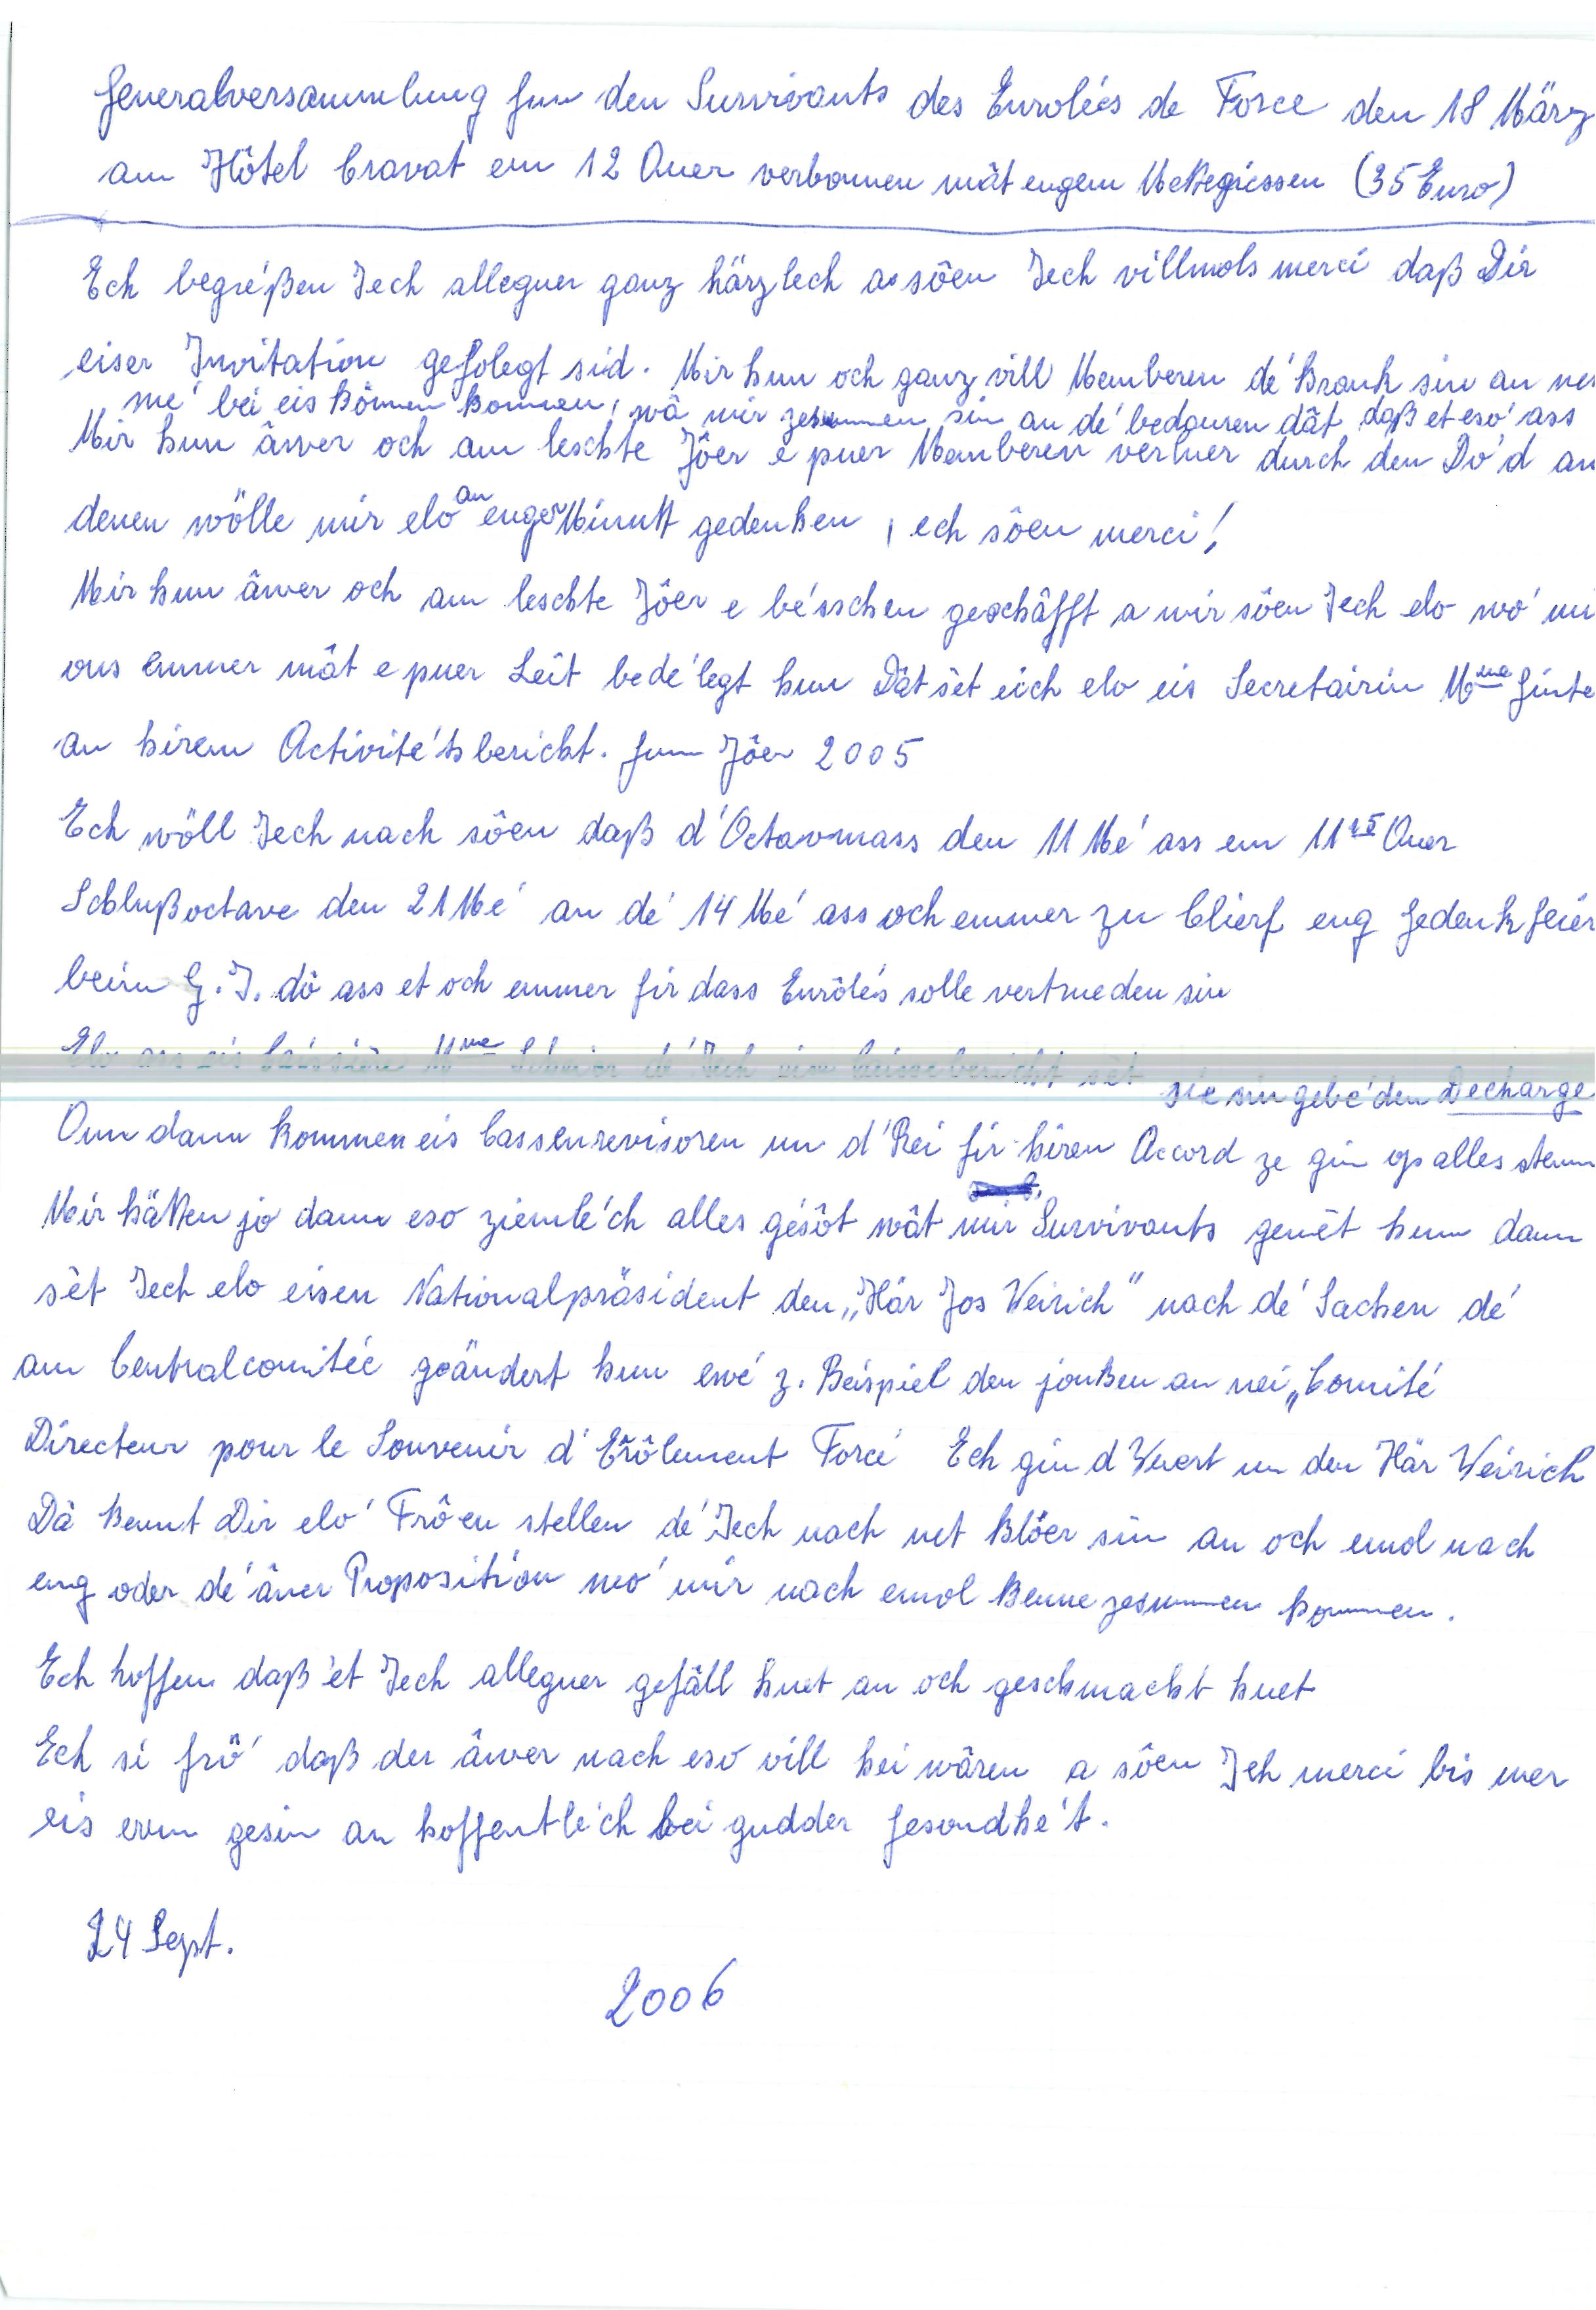 Generalversammlung fun den Survivants des Enrolées de Force den 18 März
am Hôtel Cravat em 12 Auer verbonnen mât engem Mettegiessen (35 Euro)
Ech begréßen Iech alleguer ganz härzlech a sôen Iech villmols merci daß Dir
eiser Invitatioun gefolegt sid. Mir hun och ganz vill Memberen dé krank sin an net
mé bei eis können kommen, wâ mir zesummen sin an dé bedauren dât daß et esó ass
Mir hun âwer och am leschte Jôer e puer Memberen verluer durch den Dó'd an
denen wölle mir elo an enger Minutt gedenken, ech sôen merci!
Mir hun âwer och am leschte Jôer e bésschen geschâfft a mir sôen Iech elo wó mi
ons emmer mât e puer Leit bedélegt hun Dât sèt eich elo eis Secretairin Mme Ginte
an hirem Activitétsbericht. fum Jôer 2005
Ech wöll Iech nach sôen daß d'Octavmass den 11 Mé ass em 11 15 Auer
Schlußoctave den 21 Mé an dé 14 Mé ass och emmer zu Clierf eng Gedenkfeier
beim G.I. dô ass et och emmer fir dass Enrôlés solle vertrueden sin
Elo ass eis Mme dé Iech sèt
sie sin gebéden Decharge
Oun dann kommen eis Cassenrevisoren un d'Rei fir hiren Accord ze gin op alles stemm
Mir hätten jo dann eso zieméch alles gesôt wât mir Survivants gemêt hun dann
sèt Iech elo eisen Nationalpräsident den „Här Jos Weirich" nach dé Sachen dé
am Centralcomitée geändert hun ewé z. Beispiel den jonken an nei „Comité
Directeur pour le Souvenir d' Erôlement Forcé Ech gin d Wuert un den Här Weirich
Dâ kennt Dir eló Frôen stellen dé Iech nach net klôer sin an och emol nach
eng oder dé âner Proposition wó mir nach emol kenne zesummen kommen.
Ech hoffen daß et Iech alleguer gefäll huet an och geschmacht huet
Ech si fró daß der âwer nach eso vill hei wâren a sôen Ieh merci bis mer
eis erem gesin an hoffentléch bei gudder Gesondhét.
24 Sept.
2006